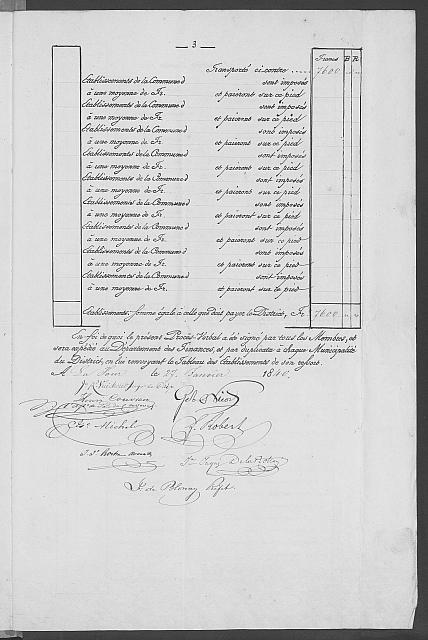 — 3 —
Francs B R
Transporté ci-contre 7600
Etablissements de la Commune d sont imposés
à une moyenne de Fr. et paieront sur ce pied
Etablissements de la Commune d sont imposés
à une moyenne de Fr. et paieront sur ce pied
Etablissements de la Commune d sont imposés
à une moyenne de Fr. et paieront sur ce pied
Etablissements de la Commune d sont imposés
à une moyenne de Fr. et paieront sur ce pied
Etablissements de la Commune d sont imposés
à une moyenne de Fr. et paieront sur ce pied
Etablissements de la Commune d sont imposés
à une moyenne de Fr. et paieront sur ce pied
Etablissements de la Commune d sont imposés
à une moyenne de Fr. et paieront sur ce pied
Etablissements de la Commune d sont imposés
à une moyenne de Fr. et paieront sur ce pied
Etablissements de la Commune d sont imposés
à une moyenne de Fr. et paieront sur ce pied
Etablissements: somme égale à celle que doit payer le District, Fr. 7600
En foi de quoi le présent Procès-Verbal a été signé par tous les Membres, et
sera expédié au Département des Finances, et par duplicata à chaque Municipalité
du District, en lui renvoyant le Tableau des Etablissements de son ressort.
A le 27 Janvier 1840.
Michel
Robert
J. de Polonay Préfet.